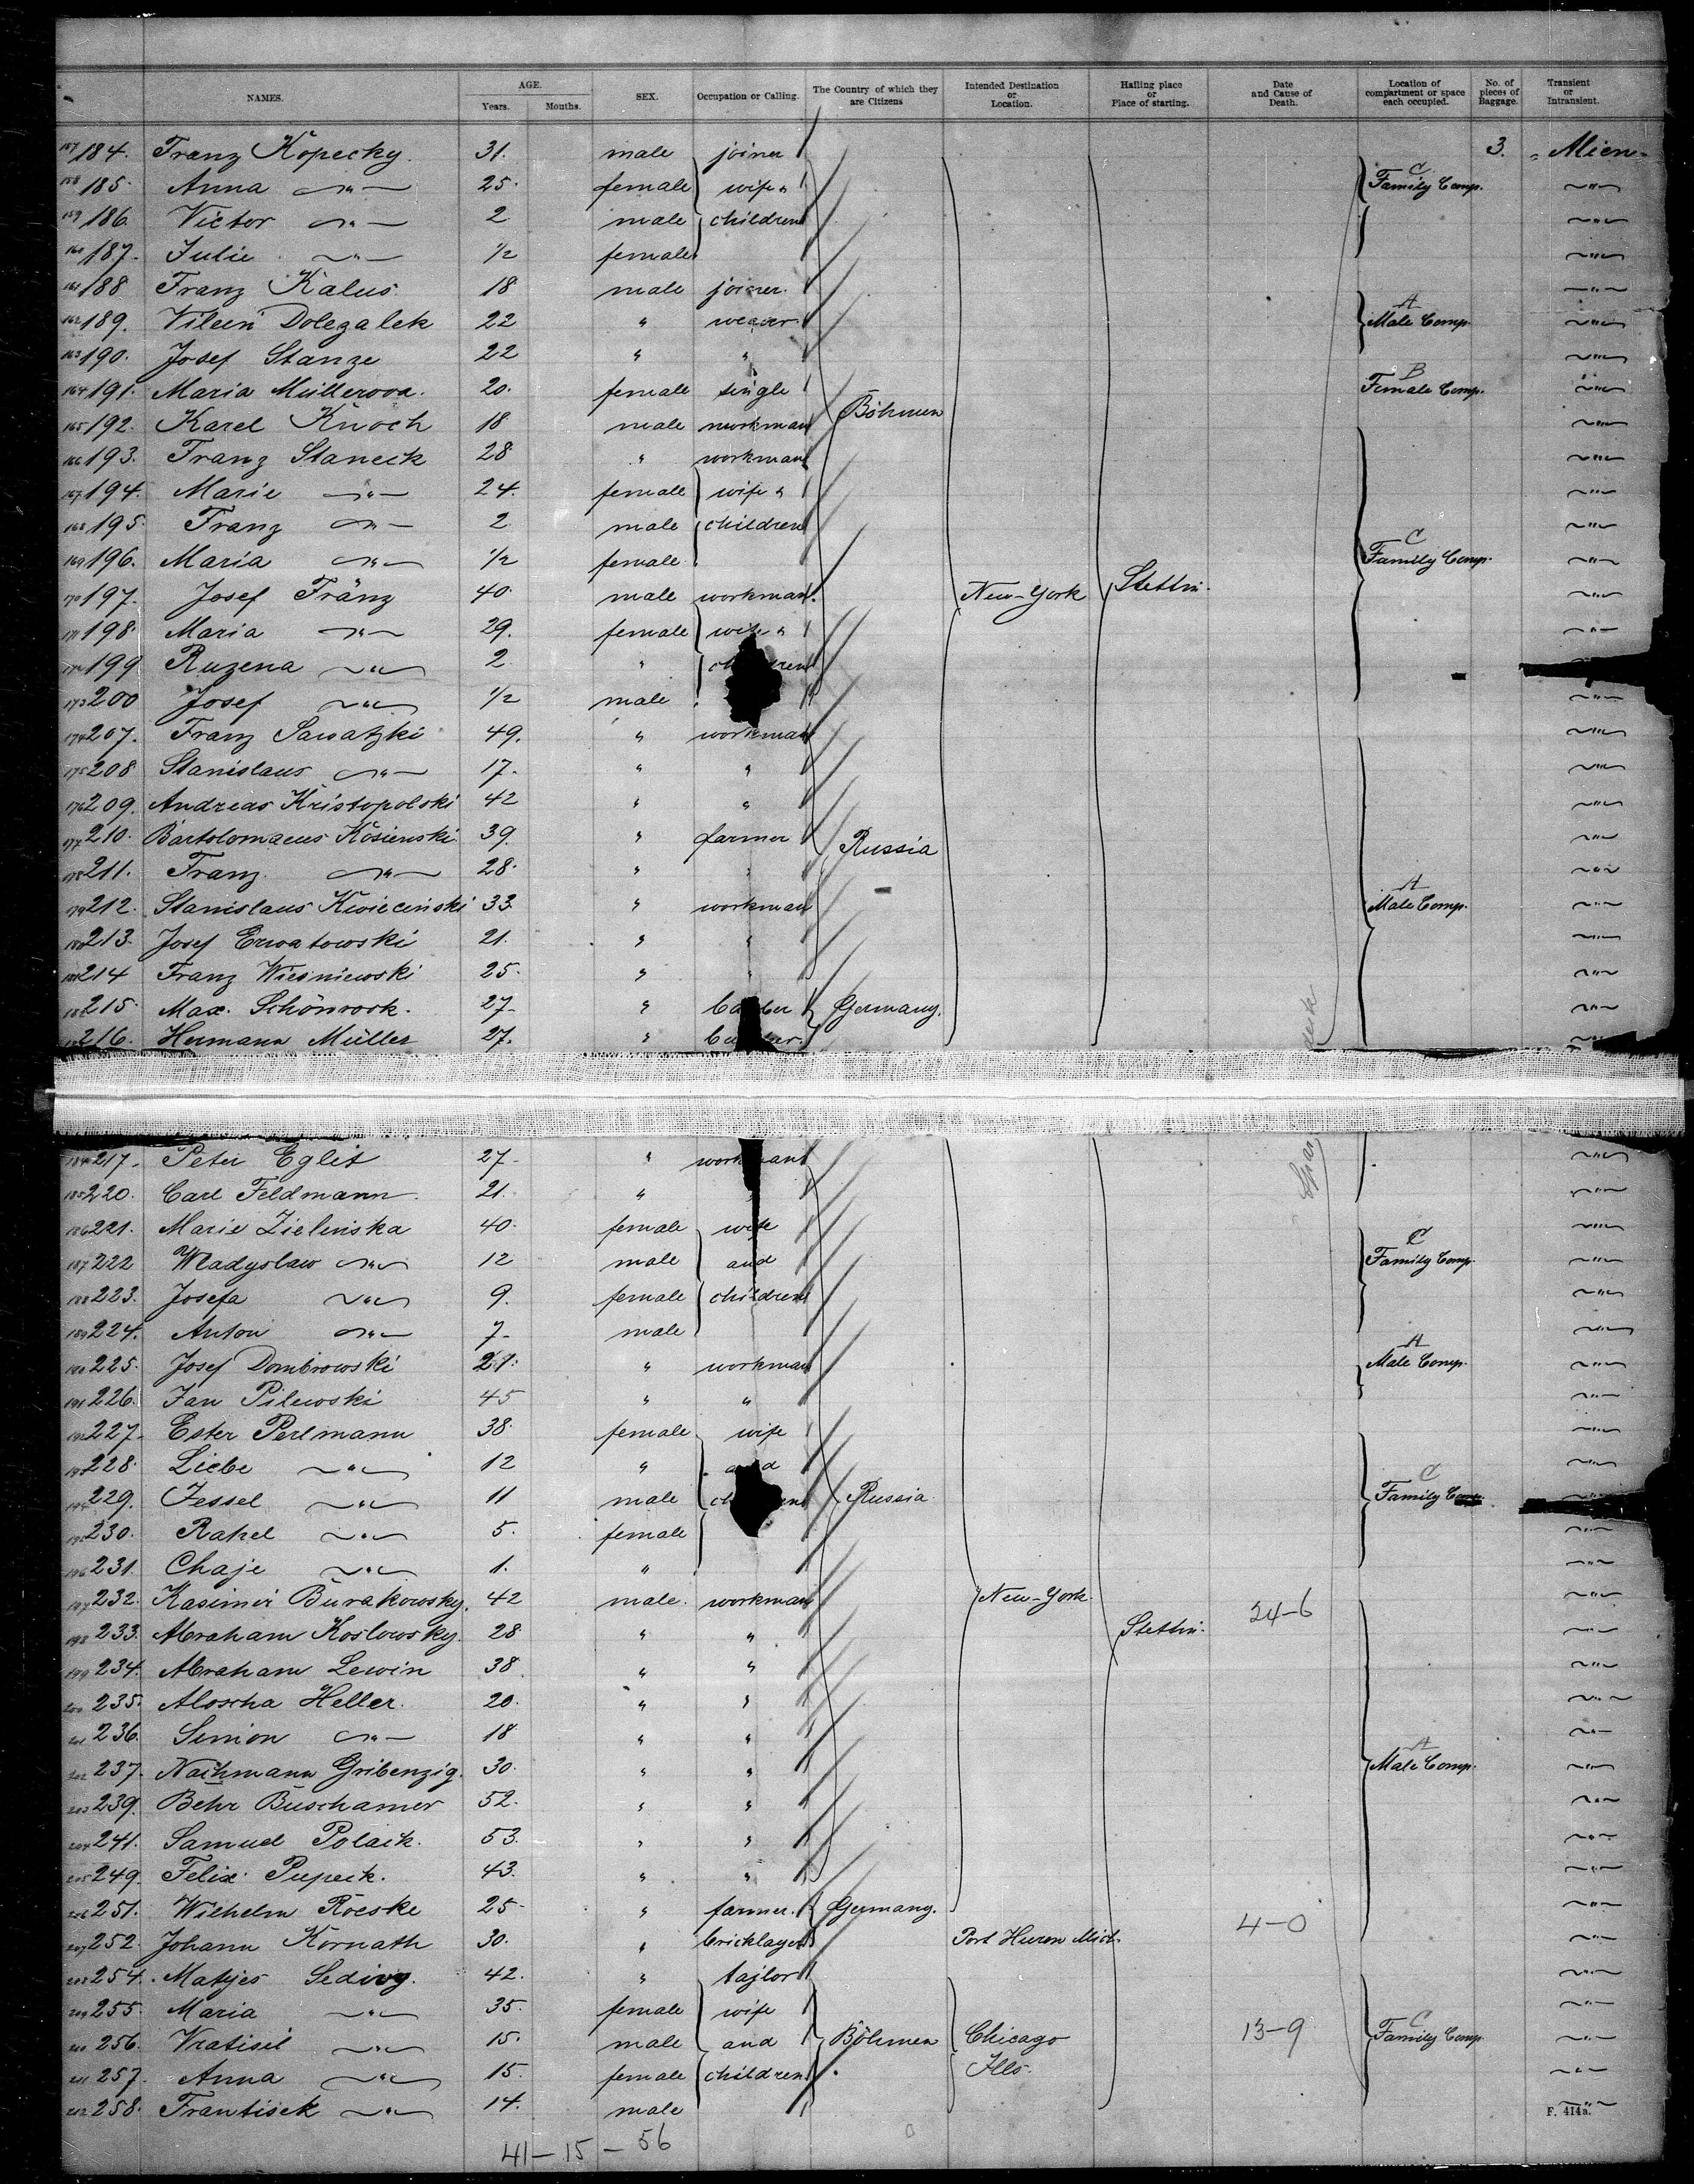 NAMES. AGE. Years. Months. SEX. Occupation or Calling. The Country of which they are Citizens Intended Destination or Location. Hailing place or Place of starting. Date and Cause of Death. Location of compartment or space each occupied. No. of pieces of Baggage. Transient or Intransient.
157 184. Franz Kopecky. 31. male joiner 3. "Alien"
158 185. Anna —"— 25. female wife & C Family Comp. —"—
159 186. Victor —"— 2 male children —"—
160 187. Julie —"— 1/2 female —"—
161 188 Franz Kalus. 18 male joiner. —"—
162 189. Dolezalek 22 " weaver. A Male Comp. —"—
163 190. Josef Stanze 22 " " —"—
164 191. Maria Müllerova. 20. female single B Female Comp. —"—
165 192. Karel Knoch 18 male workman Böhmen —"—
166 193. Franz Staneck 28 " workman —"—
167 194. Marie —"— 24. female wife & —"—
168 195. Franz —"— 2 male children —"—
169 196. Maria —"— 1/2 female C Family Comp. —"—
170 197. Josef Franz 40. male workman. New-York Stettin. —"—
171 198. Maria —"— 29. female wife & —"—
172 199 Ruzena —"— 2 " children
173 200 Josef —"— 1/2 male —"—
174 207. Franz Sawatzki 49. " workman —"—
175 208 Stanislaus —"— 17. " " —"—
176 209. Andreas Kristopolski 42 " " —"—
177 210. Bartolomaeus Kosienski 39. " farmer Russia —"—
178 211. Franz —"— 28. " " —"—
179 212. Stanislaus Kwiecinski 33. " workman A Male Comp. —"—
180 213. Josef Erwatowski 21. " " —"—
181 214 Franz Wiesniewski 25. " " —"—
182 215. Max. Schönrock. 27. " Germany. —"—
216. Hermann Müller 27. " —"—
184 217. Peter Eglit 27. " workman —"—
185 220. Carl Feldmann 21. " —"—
186 221. Marie Zielinska 40. female wife —"—
187 222 Wladyslaw —"— 12 male and C Family Comp. —"—
188 223. Josefa —"— 9. female children —"—
189 224. Anton —"— 7. male —"—
190 225. Josef Dombrowski 21. " workman A Male Comp. —"—
191 226. Jan Pilewski 45 " " —"—
192 227. Ester Perlmann 38. female wife —"—
193 228. Liebe —"— 12 " and —"—
194 229. Jessel —"— 11 male children Russia C Family Comp. —"—
195 230. Rahel —"— 5. female —"—
196 231. Chaje —"— 1. " —"—
197 232. Kasimir Burakowsky. 42 male. workman New-York —"—
198 233. Abraham Koslowsky. 28. " " Stettin. 24-6 —"—
199 234. Abraham Lewin 38 " " —"—
200 235. Aloscha Heller. 20. " " —"—
201 236. Simon —"— 18 " " —"—
202 237. Nachmann Gribenzig. 30. " " A Male Comp. —"—
203 239. Behr Buschamer 52. " " —"—
204 241. Samuel Polack. 53. " " —"—
205 249. Felix Pupeck. 43. " " —"—
206 251. Wilhelm Roeske 25 " farmer. Germany. —"—
207 252. Johann Kornath 30. " bricklayer Port Huron Mich. 4-0 —"—
208 254. Matyes Sedivy. 42. " tajlor —"—
209 255. Maria —"— 35. female wife —"—
210 256. Vratisil —"— 15. male and Böhmen Chicago 13-9 C Family Comp. —"—
211 257. Anna —"— 15. female children Ills. —"—
212 258. Frantisek —"— 14. male —"—
F. 414a.
41-15-56